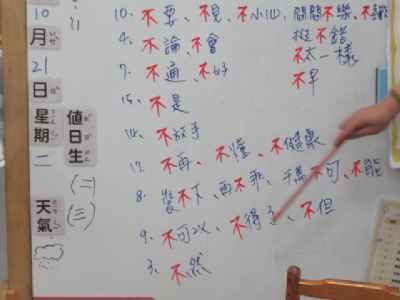 10
月
21
日
星期
二
值日生
(二)
(三)
天氣
10. 不要、不見、不小心、悶悶不樂、不錯
挺不錯
不太一樣
不早
4. 不論、不會
7. 不通、不好
15. 不是
14. 不放手
17. 不再、不懂、不健康
8. 裝不下、再不乖、不可、不能
9. 不可以、不得了、不但
3. 不然